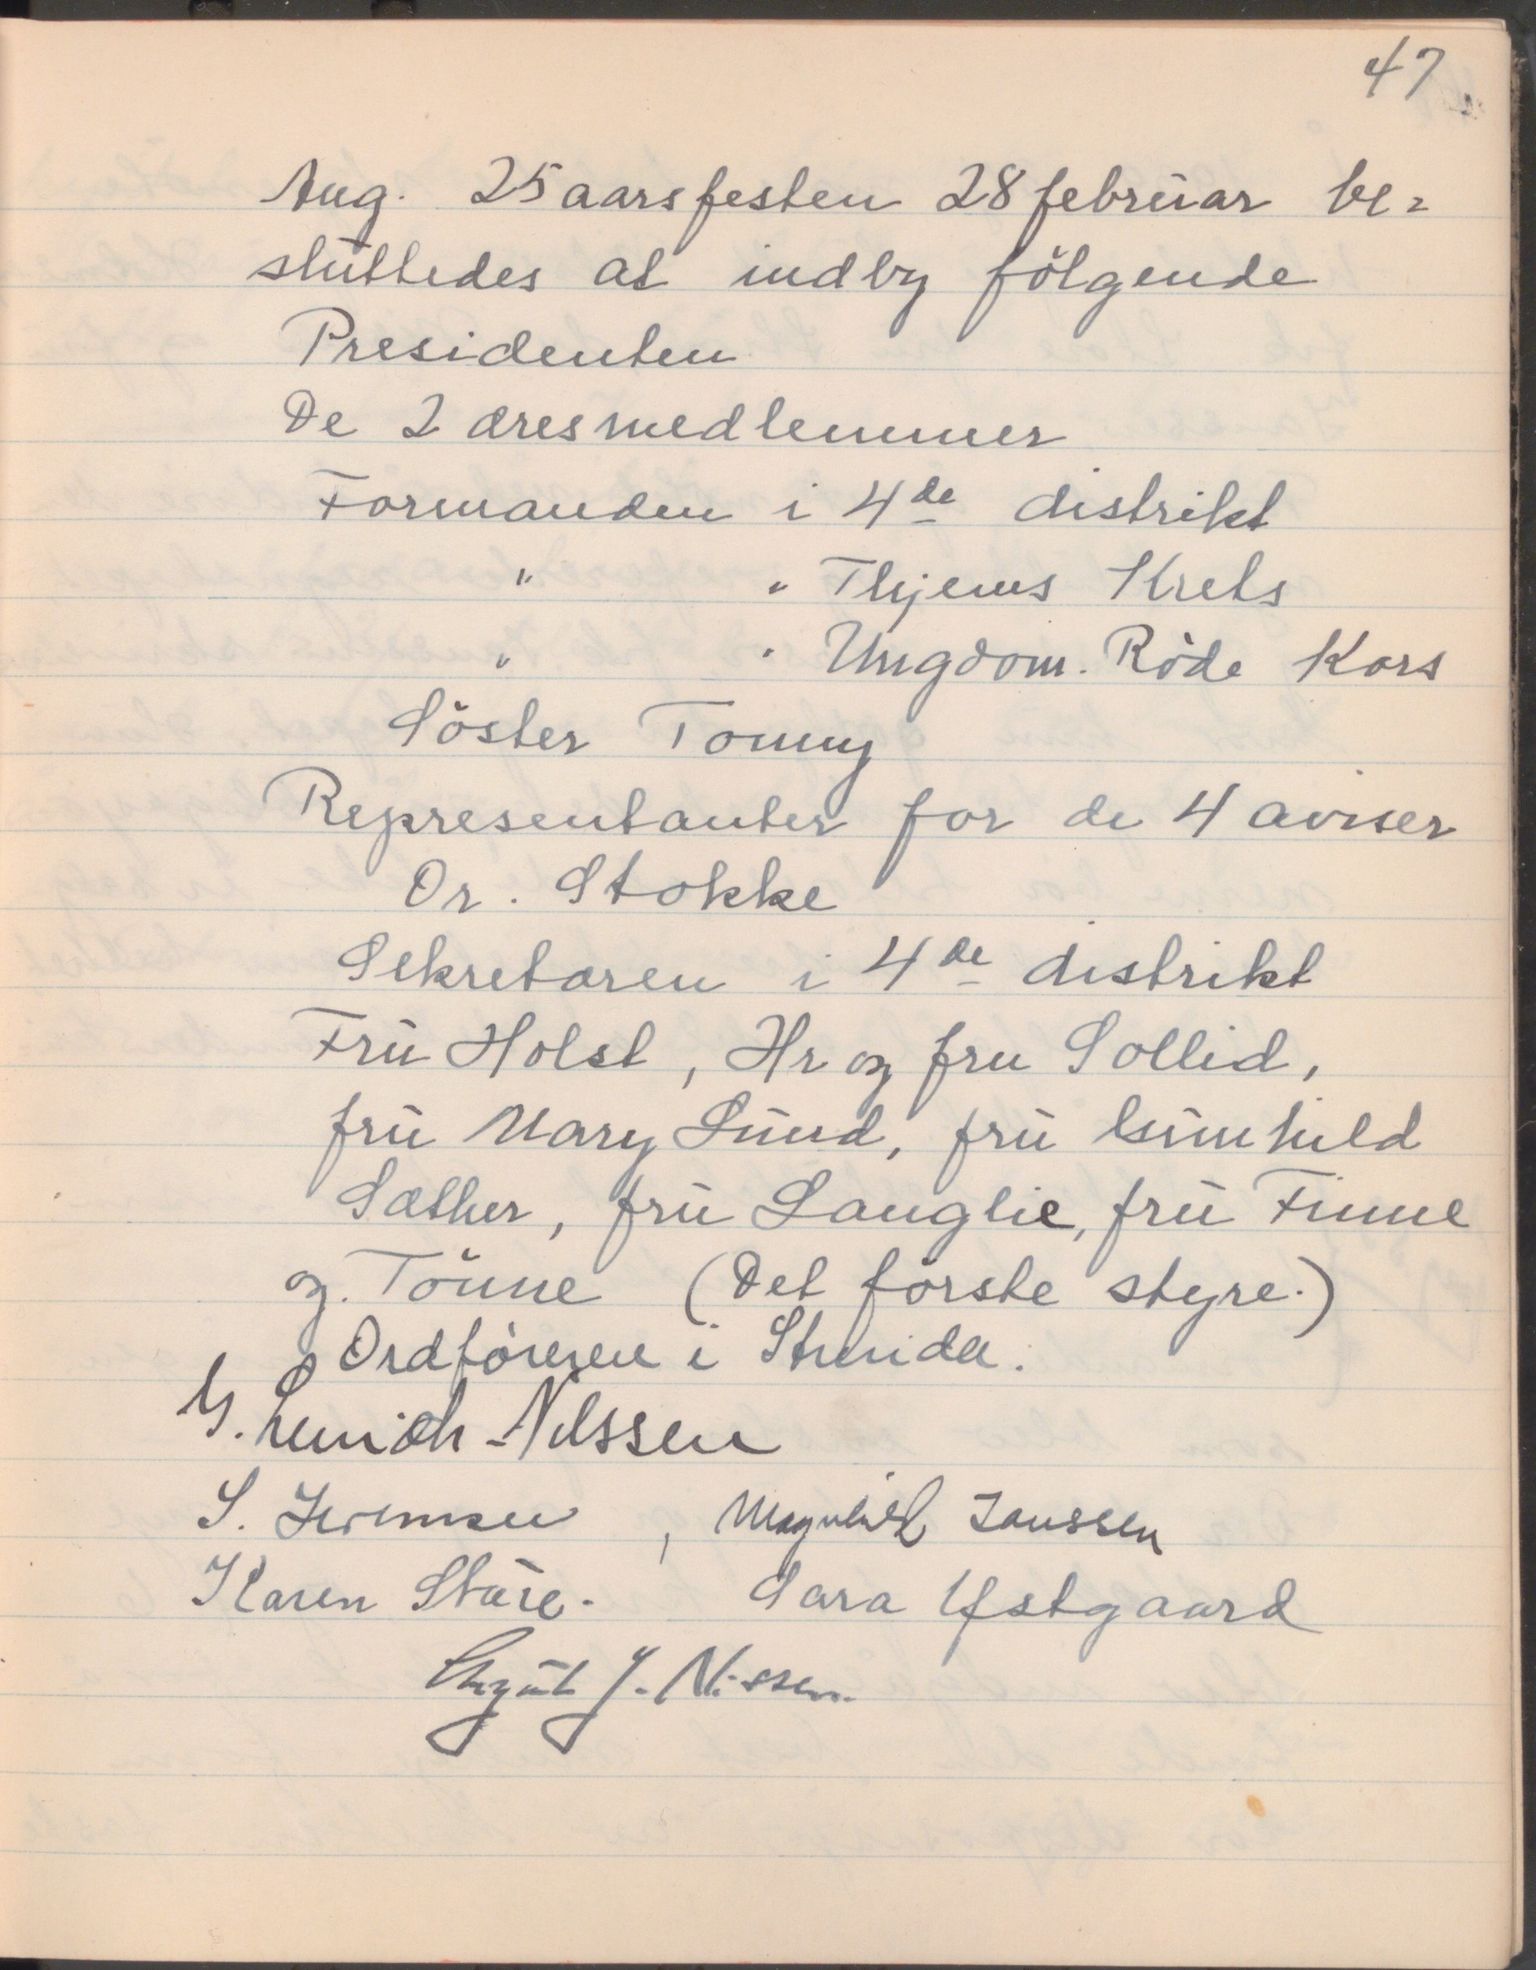 47
Aug. 25aarsfesten 28 februar be=
sluttedes at indby følgende
Presidenten
De 2 æresmedlemmer
Formanden i 4de distrikt
" " Thjems Krets
" " Ungdom. Røde Kors
Søster Tommy
Representanter for de 4 aviser
Dr. Stokke
Sekretæren i 4de distrikt
Fru Holst, Hr og fru Sollid,
fru Mary Lund, fru Gunhild
Sæther, fru Langlie, fru Finne
og. Tønne (Det første styre.)
Ordføreren i Strinda.
Lunich-Nilssen
S. , Magnhild Janssen
Karen Støre. Sara Ystgaard
J. Nissen.